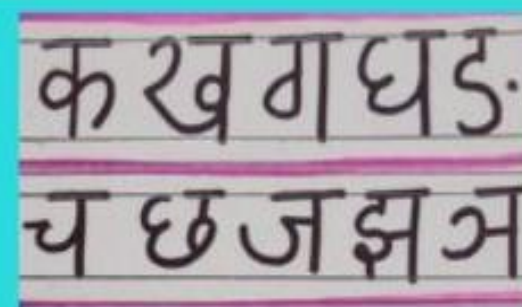 क ख ग घ ङ
च छ ज झ ञ